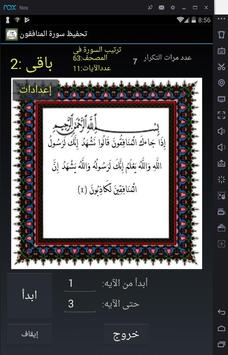 nox Nox
8:56
تحفيظ سورة المنافقون
ترتيب السورة فى
المصحف:63
عددالآيات:11
عدد مرات التكرار
7
باقى :2
إعدادات
بِسْمِ اللَّهِ الرَّحْمَٰنِ الرَّحِيمِ
إِذَا جَاءَكَ الْمُنَافِقُونَ قَالُوا نَشْهَدُ إِنَّكَ لَرَسُولُ
اللَّهِ وَاللَّهُ يَعْلَمُ إِنَّكَ لَرَسُولُهُ وَاللَّهُ يَشْهَدُ إِنَّ
الْمُنَافِقِينَ لَكَاذِبُونَ (١)
أبدأ من الآيه:
1
حتى الآيه:
3
ابدأ
إيقاف
خروج